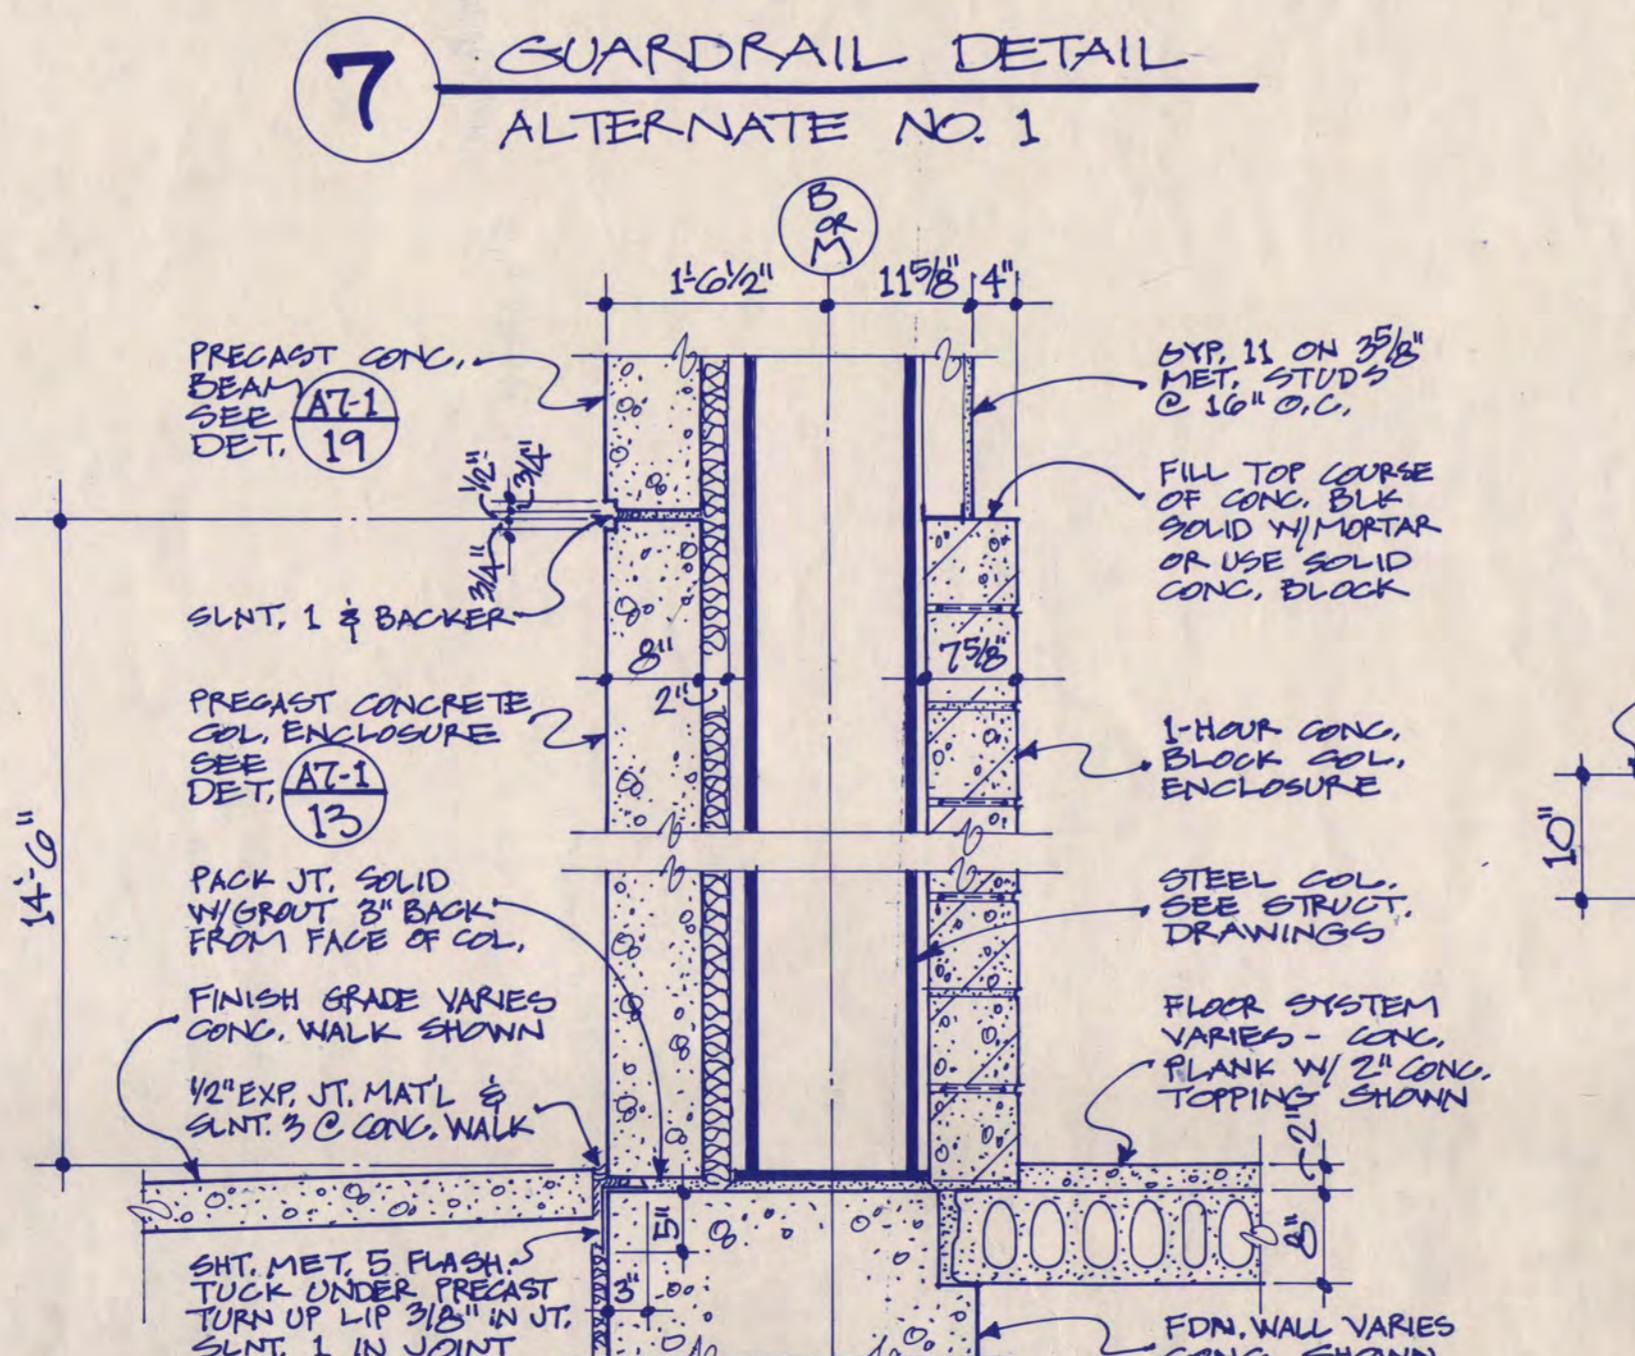 7
GUARDRAIL DETAIL
ALTERNATE NO. 1
B
OR
M
1'-6 1/2"
11 5/8"
4"
PRECAST CONC.
BEAM
SEE
DET.
A7-1
19
1/2"
3/4"
3/4"
SLNT. 1 & BACKER
8"
2"
7 5/8"
PRECAST CONCRETE
COL. ENCLOSURE
SEE
DET.
A7-1
13
14'-6"
PACK JT. SOLID
W/GROUT 3" BACK
FROM FACE OF COL.
FINISH GRADE VARIES
CONC. WALK SHOWN
1/2" EXP. JT. MAT'L &
SLNT. 3 @ CONC. WALK
SHT. MET. 5 FLASH.
TUCK UNDER PRECAST
TURN UP LIP 3/8" IN JT.
SLNT. 1 IN JOINT
5"
3"
GYP. 11 ON 3 5/8"
MET. STUDS
@ 16" O.C.
FILL TOP COURSE
OF CONC. BLK
SOLID W/MORTAR
OR USE SOLID
CONC. BLOCK
1-HOUR CONC.
BLOCK COL.
ENCLOSURE
10"
STEEL COL.
SEE STRUCT.
DRAWINGS
FLOOR SYSTEM
VARIES - CONC.
PLANK W/ 2" CONC.
TOPPING SHOWN
2"
8"
FDN. WALL VARIES
CONC. SHOWN